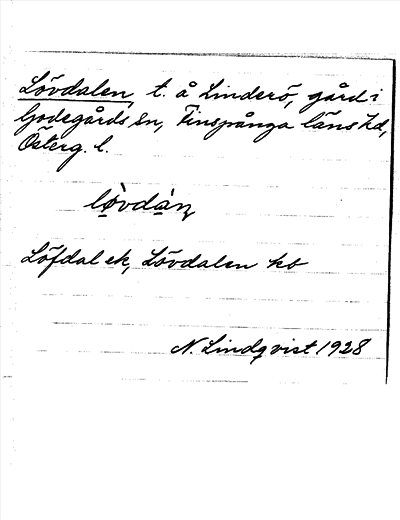 Lövdalen, t. å Linderö, gård i
Godegårds sn, Finspånga läns hd,
Österg. l.
lø̀vdàn
Löfdal ek, Lövdalen kb
N. Lindqvist 1928